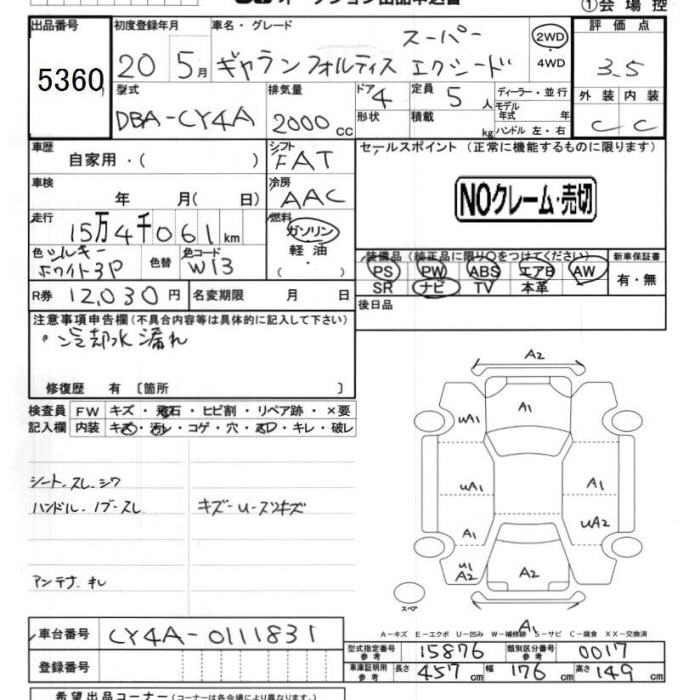 オークション出品申込書
①会場控
出品番号 初度登録年月 車名・グレード 評価点
5360 20 5月 ギャランフォルティス スーパーエクシード 2WD ・ 4WD 3.5
型式 排気量 ドア 定員 ディーラー・並行 外装 内装
DBA-CY4A 2000cc 4 5人 モデル年式 年 C C
形状 積載 kg ハンドル 左・右
車歴 シフト セールスポイント (正常に機能するものに限ります)
自家用・( ) FAT
車検 冷房
年 月( 日) AAC NOクレーム・売切
走行 燃料
15万4千061km ガソリン
軽油
( ・ )
色 シルキーホワイト3P 色替 色コード W13
装備品 (純正品に限り○をつけてください) 新車保証書
PS PW ABS エアB AW 有・無
SR ナビ TV 本革
R券 12,030円 名変期限 月 日 後日品
注意事項申告欄(不具合内容等は具体的に記入して下さい)
・冷却水漏れ
修復歴 有 〔箇所 〕
検査員 FW キズ・飛石・ヒビ割・リペア跡・×要
記入欄 内装 キズ・汚レ・コゲ・穴・スレ・キレ・破レ
シート.スレ.シワ
ハンドル.ノブ-スレ キズ-U-スリキズ
アンテナ.オレ
A2
A1
UA1
UA1
A1
A1
UA2
U1
A2
A2
A1
スペア
A-キズ E-エクボ U-凹み W-補修跡 S-サビ C-腐食 XX-交換済
車台番号 CY4A-0111831
型式指定番号 参考 15876 類別区分番号 参考 0017
登録番号 車庫証明用 参考 長さ 457cm 幅 176cm 高さ 149cm
希望出品コーナー(コーナーは各会場により異なります)